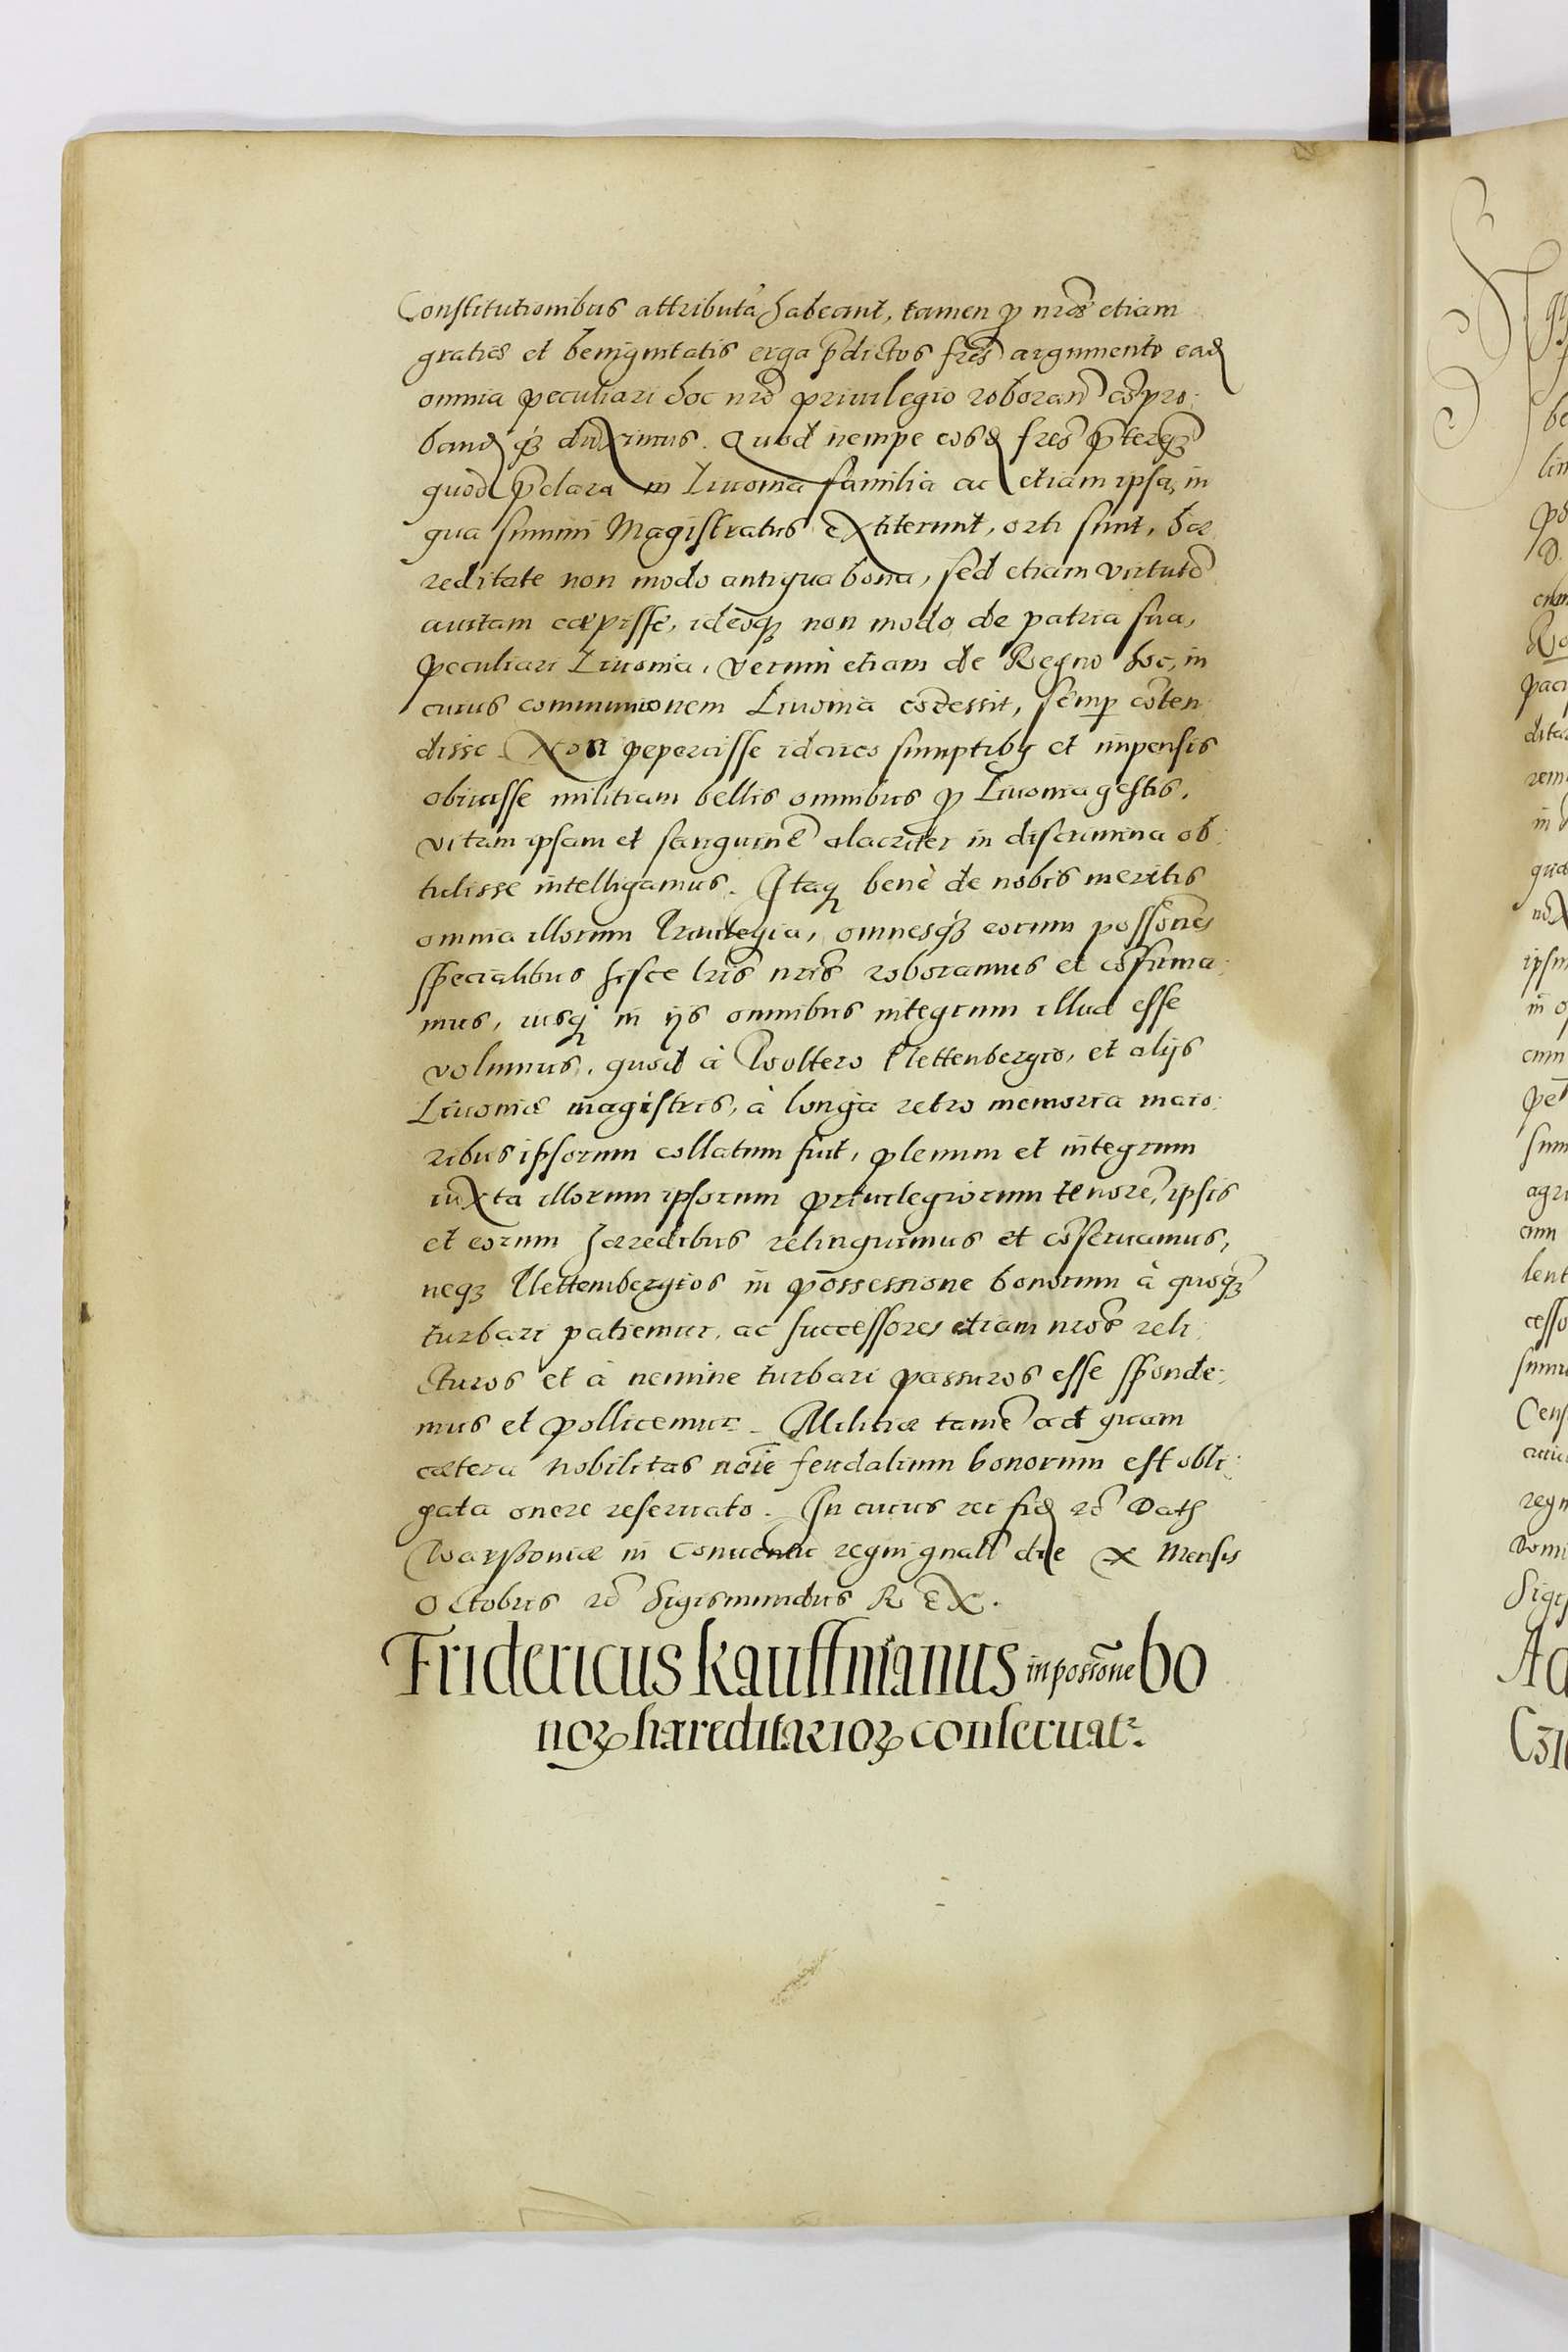 Constitutionibus attributa habeant, tamen ꝓ nr̃ae etiam
gratiae et benignitatis erga p̃dictos fr̃es argumento eadꝫ
omnia peculiari hoc nr̃o priuilegio roboran͂ cõpro:
bandꝫ qꝫ duximus. Quod nempe eosdꝫ fr̃es p̃terqꝫ
quod p̃clara in Liuonia familia ac etiam ipsa, in
qua summi Magistratus extiterunt, orti sunt, hæ
reditate non modo antiqua bona, sed etiam virtutẽ
auitam cæpisse, ideoqꝫ non modo de patria sua,
peculiari Liuonia, verum etiam de Regno hoc, in
cuius communionem Liuonia cõcessit, semꝑ cõten
disse. Non pepercisse idcirco sumptibꝫ et impensis
obiuisse militiam bellis omnibus ꝓ Liuonia gestis,
vitam ipsam et sanguinẽ alacriter in discrimina ob:
tulisse intelligamus. Itaqꝫ benè de nobis meritis
omnia illorum Priuilegia, omnesqꝫ eorum possiones
specialibus hisce lr̃is nr̃is roboramus et cõfirma:
mus, iusqꝫ in ijs omnibus integrum illud esse
volumus, quod à Woltero Plettenbergio, et alijs
Liuoniæ magistris, à longa retro memoria maio:
ribus ipsorum collatum fuit, plenum et integrum
iuxta illorum ipsorum priuilegiorum tenorẽ, ipsis
et eorum hæredibus relinquimus et cõseruamus,
neqꝫ Plettembergios in possessione bonorum à quoqꝫ
turbari patiemur, ac successores etiam nr̃os reli:
cturos et à nemine turbari passuros esse sponde:
mus et pollicemur. Militiæ tamẽ ad quam
cætera nobilitas nõie feudalium bonorum est obli:
gata onere reseruato. In cuius rei fidꝫ rc̃ Datꝫ
Warssouiæ in Conuentu regni gnãli die x Mensis
Octobris rc̃ Sigismundus REX.
Fridericus Kauffmanus in possiõne bo
noꝝ hæreditarioꝝ conseruatr